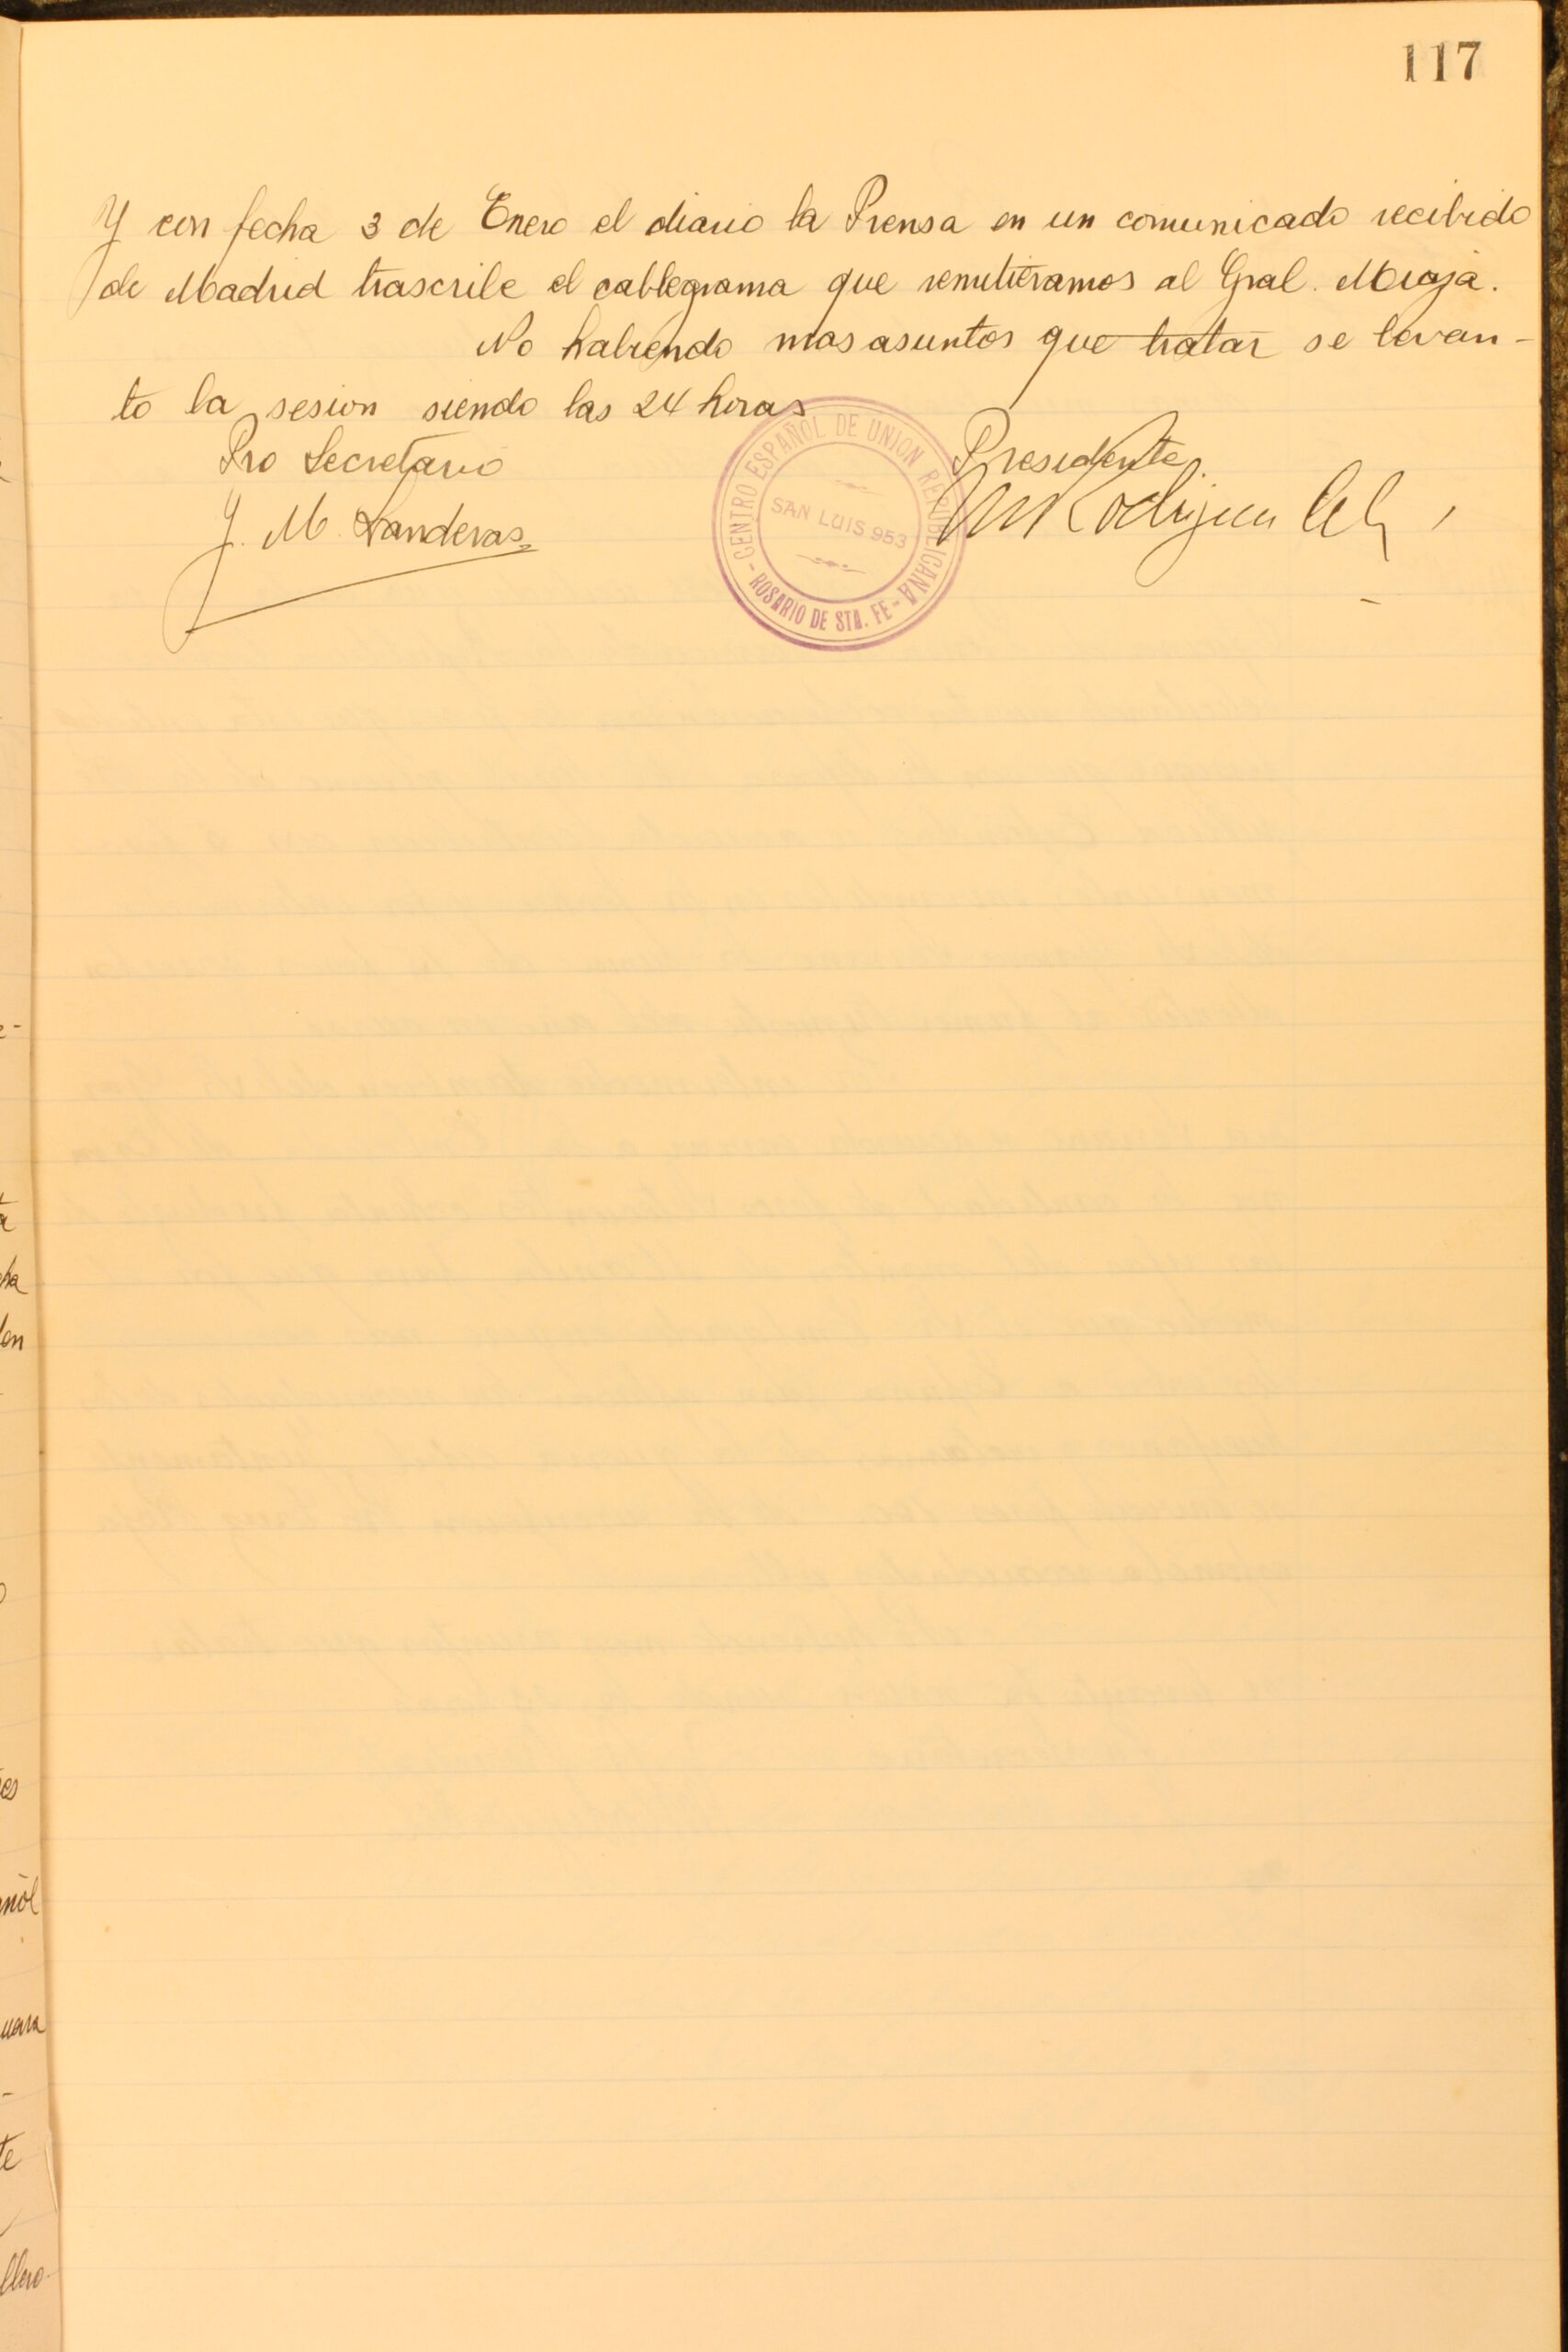 117
Y con fecha 3 de Enero el diario la Prensa en un comunicado recibido
de Madrid trascribe el cablegrama que remitieramos al Gral. Miaja.
No habiendo mas asuntos que tratar se levan-
to la sesion siendo las 24 horas
Pro Secretario
Presidente.
J. M. Landeras
CENTRO ESPAÑOL DE UNION REPUBLICANA
SAN LUIS 953
- ROSARIO DE STA. FE -